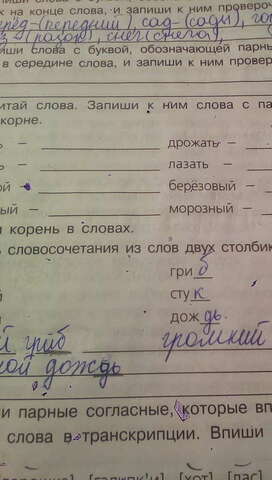 к на конце слова, и запиши к ним провероч
перед-(передний), сад-(сады), го
(пазок), снег(снега),
пиши слова с буквой, обозначающей парны
в середине слова, и запиши к ним провер
итай слова. Запиши к ним слова с па
корне.
ь – дрожать –
– лазать –
ой – берёзовый –
ный – морозный –
и корень в словах.
ь словосочетания из слов двух столбик
гриб
стук
й дождь
й гриб громкий
кой дождь
и парные согласные, которые вп
слова в транскрипции. Впиши
[хот] [пас]